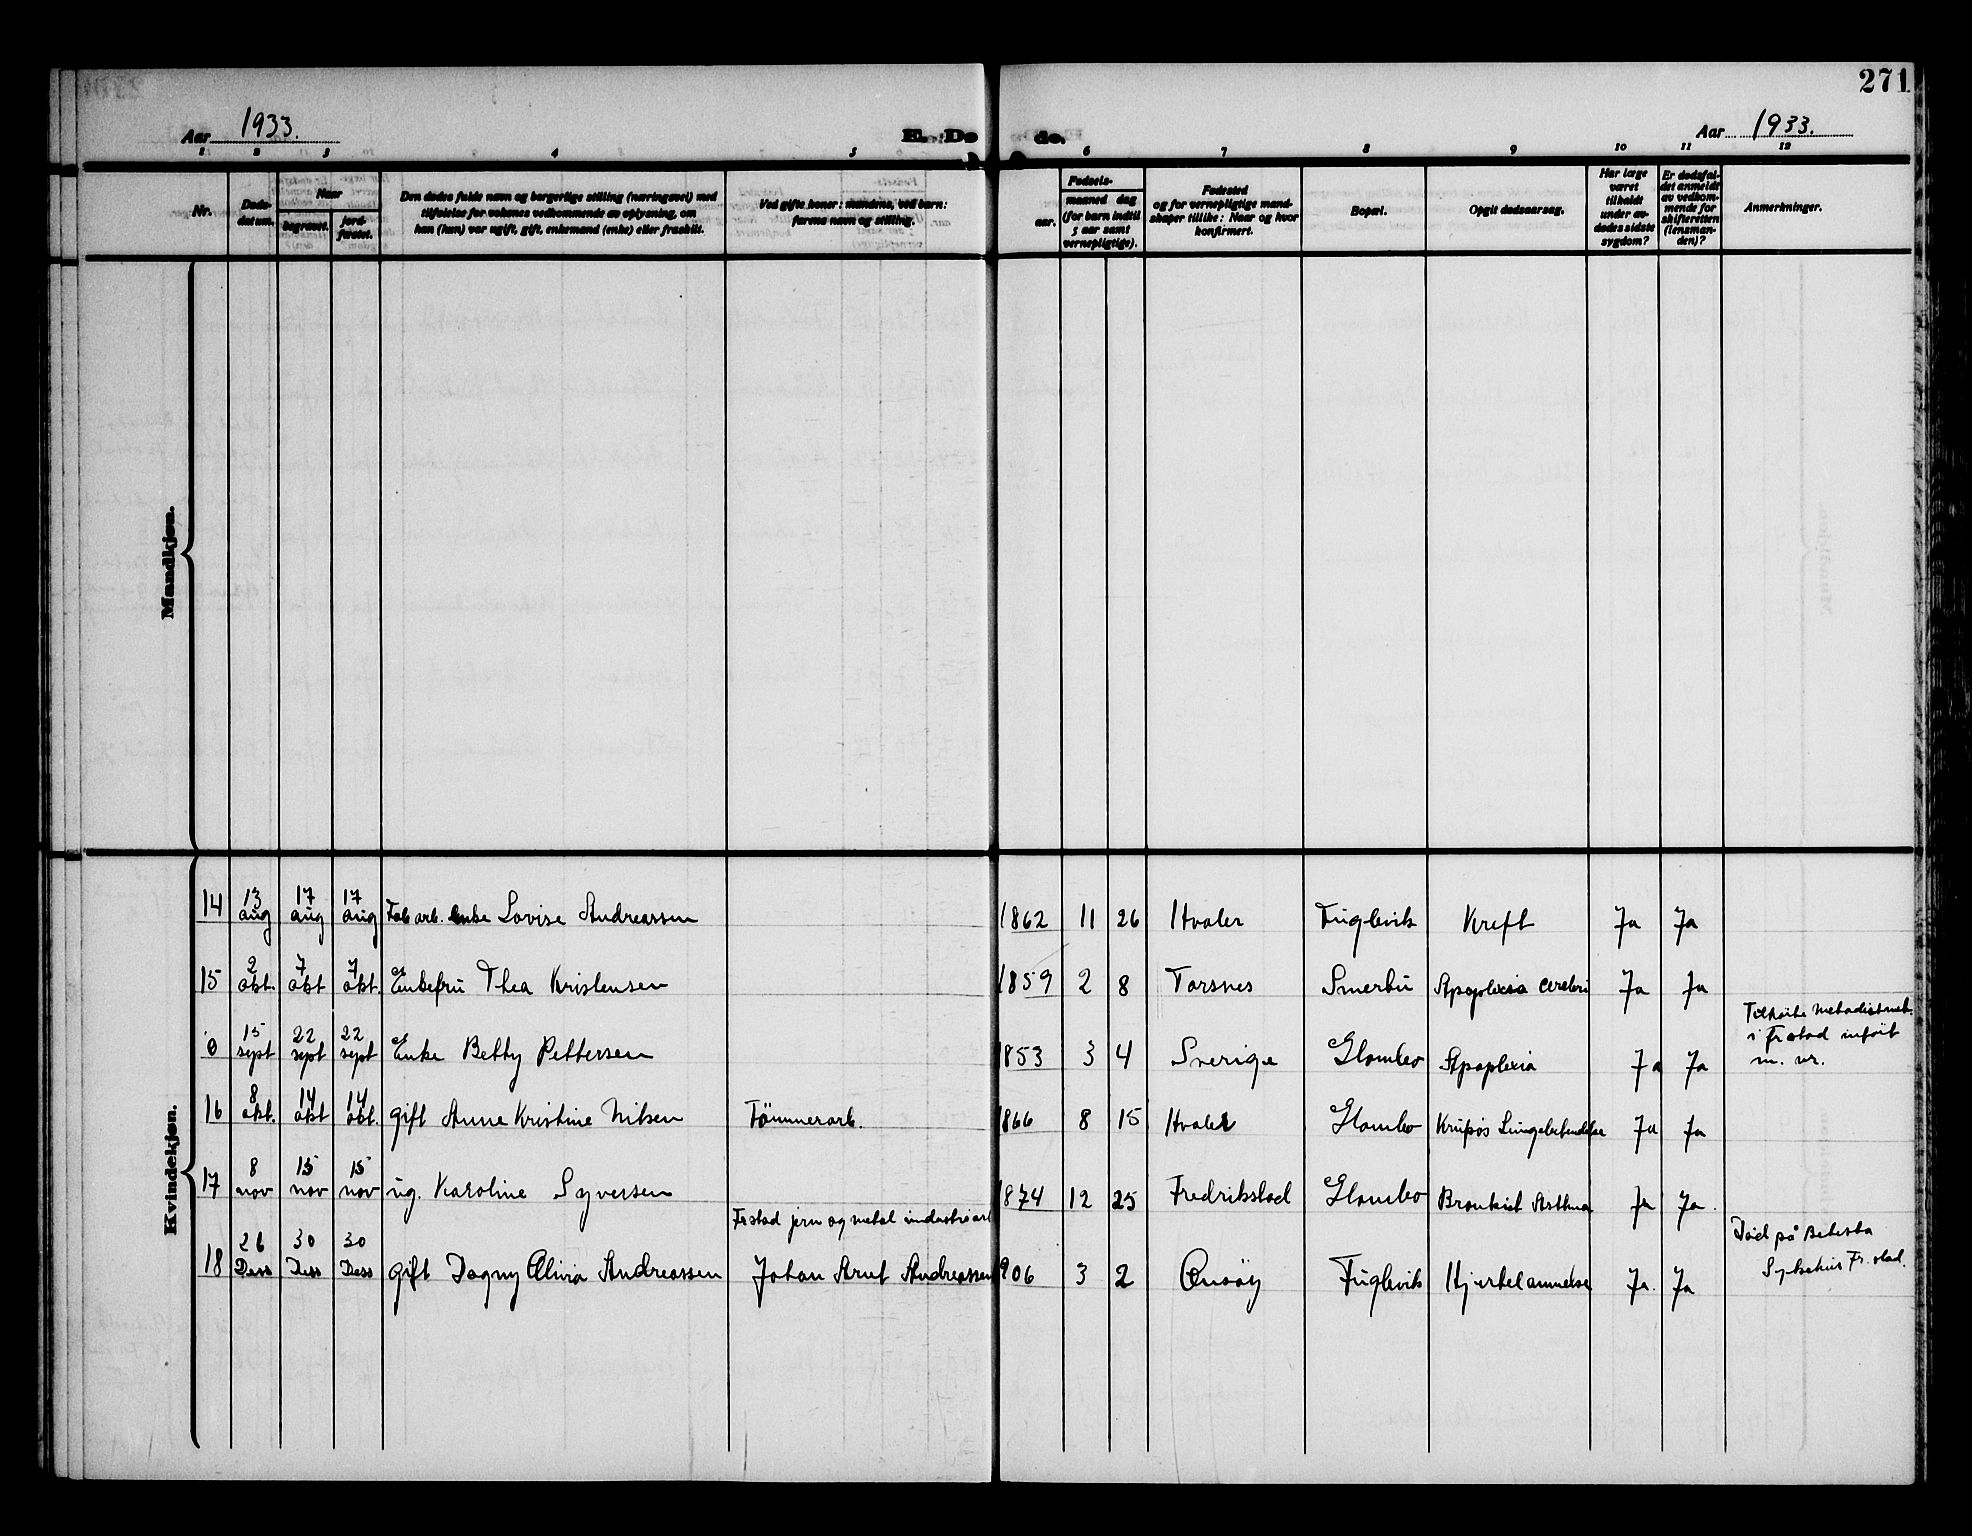 271
Aar 1933.
E. Dø
de.
Aar 1933.
1 2 3 4 5 6 7 8 9 10 11 12
Nr.
Døds-
datum.
Naar
begravet.
jord-
fæstet.
Den dødes fulde navn og borgerlige stilling (næringsvei) med
tilføielse for voksnes vedkommende av oplysning, om
han (hun) var ugift, gift, enkemand (enke) eller fraskilt.
Ved gifte koner: mandens, ved barn:
farens navn og stilling.
Fødsels-
aar.
maaned dag
(for barn indtil
5 aar samt
vernepligtige).
Fødested
og for vernepligtige mand-
skaper tillike: Naar og hvor
konfirmert.
Bopæl.
Opgit dødsaarsag.
Har læge
været
tilkaldt
under av-
dødes sidste
sygdom?
Er dødsfal-
det anmeldt
av vedkom-
mende for
skifteretten
(lensman-
den)?
Anmerkninger.
Mandkjøn.
Kvindekjøn.
14 13 aug 17 aug 17 aug Fab arb. enke Lovise Andreassen 1862 11 26 Hvaler Fuglevik Kreft Ja Ja
15 2 okt. 7 okt 7 okt. Enkefru Thea Kristensen 1859 2 8 Torsnes Smertu Apoplexia cerebri Ja Ja
0 15 sept 22 sept 22 sept Enke Betty Pettersen 1853 3 4 Sverige Glombo Apoplexia Ja Ja
Tilhørte Metodistmek.
i Fr.stad infört
m. nr.
16 8 okt. 14 okt 14 okt. gift Anne Kristine Nilsen Tömmerarb. 1866 8 15 Hvaler Glombo Krupøs Lungebetendelse Ja Ja
17 8 nov 15 nov 15 nov ug. Karoline Syversen 1874 12 25 Fredrikstad Glombo Bronkit Asthma Ja Ja.
Fr stad jern og metal industriarb
18 26 Des 30 Des 30 Des gift Dagny Alivia Andreassen Johan Arnt Andreassen 1906 3 2 Onsöy Fuglevik Hjertelammelse Ja. Ja
Död på Betesta
Sykehus Fr.stad.